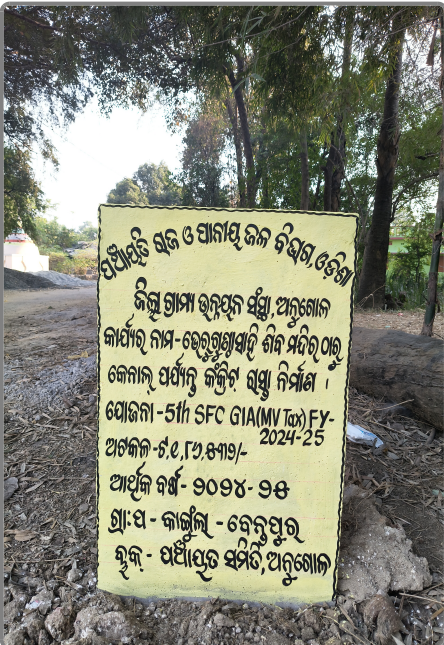 ପଞ୍ଚାୟତି ରାଜ ଓ ପାନୀୟ ଜଳ ବିଭାଗ, ଓଡ଼ିଶା
ଜିଲ୍ଲା ଗ୍ରାମ୍ୟ ଉନ୍ନୟନ ସଂସ୍ଥା, ଅନୁଗୋଳ
କାର୍ଯ୍ୟର ନାମ - ଶିବ ମନ୍ଦିର ଠାରୁ
କେନାଲ୍ ପର୍ଯ୍ୟନ୍ତ କଂକ୍ରିଟ୍ ରାସ୍ତା ନିର୍ମାଣ ।
ଯୋଜନା - 5th SFC GIA(MV Tax) FY-
2024-25
ଅଟକଳ -
ଆର୍ଥିକ ବର୍ଷ - ୨୦୨୪-୨୫
ଗ୍ରା:ପ - କାଙ୍ଗୁଲା - ବେନ୍ତପୁର
ବ୍ଲକ୍ - ପଞ୍ଚାୟତ ସମିତି, ଅନୁଗୋଳ